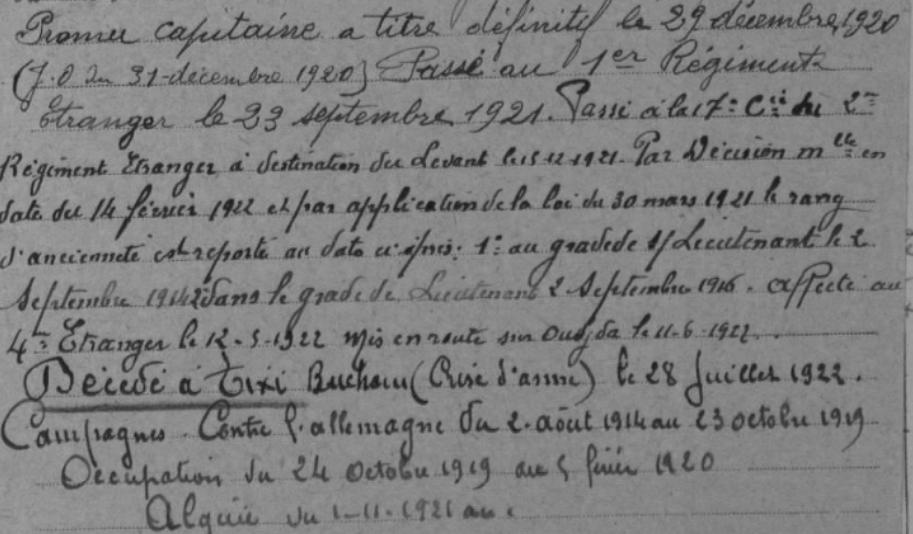 Promu capitaine a titre définitif le 29 décembre 1920
(J.O du 31-décembre 1920) Passé au 1er Régiment
Etranger le 23 septembre 1921. Passé à la 17e Cie du 2me
Régiment Etranger à destination du Levant le 15-12-1921. Par Décision mlle en
date du 14 février 1922 et par application de la loi du 30 mars 1921 le rang
d'ancienneté est reporté au date ci après: 1° au grade de S/Lieutenant le 2
Septembre 1914 2° dans le grade de Lieutenant 2 Septembre 1916. affecté au
4me Etranger le 12-5-1922 Mis en route sur Oudjda le 11-6-1922.
Décédé à Tizi (Crise d'anné) le 28 Juillet 1922.
Campagnes. Contre l'allemagne du 2 août 1914 au 23 octobre 1919
Occupation du 24 Octobre 1919 au 5 février 1920
Algérie du 1-11-1921 au.